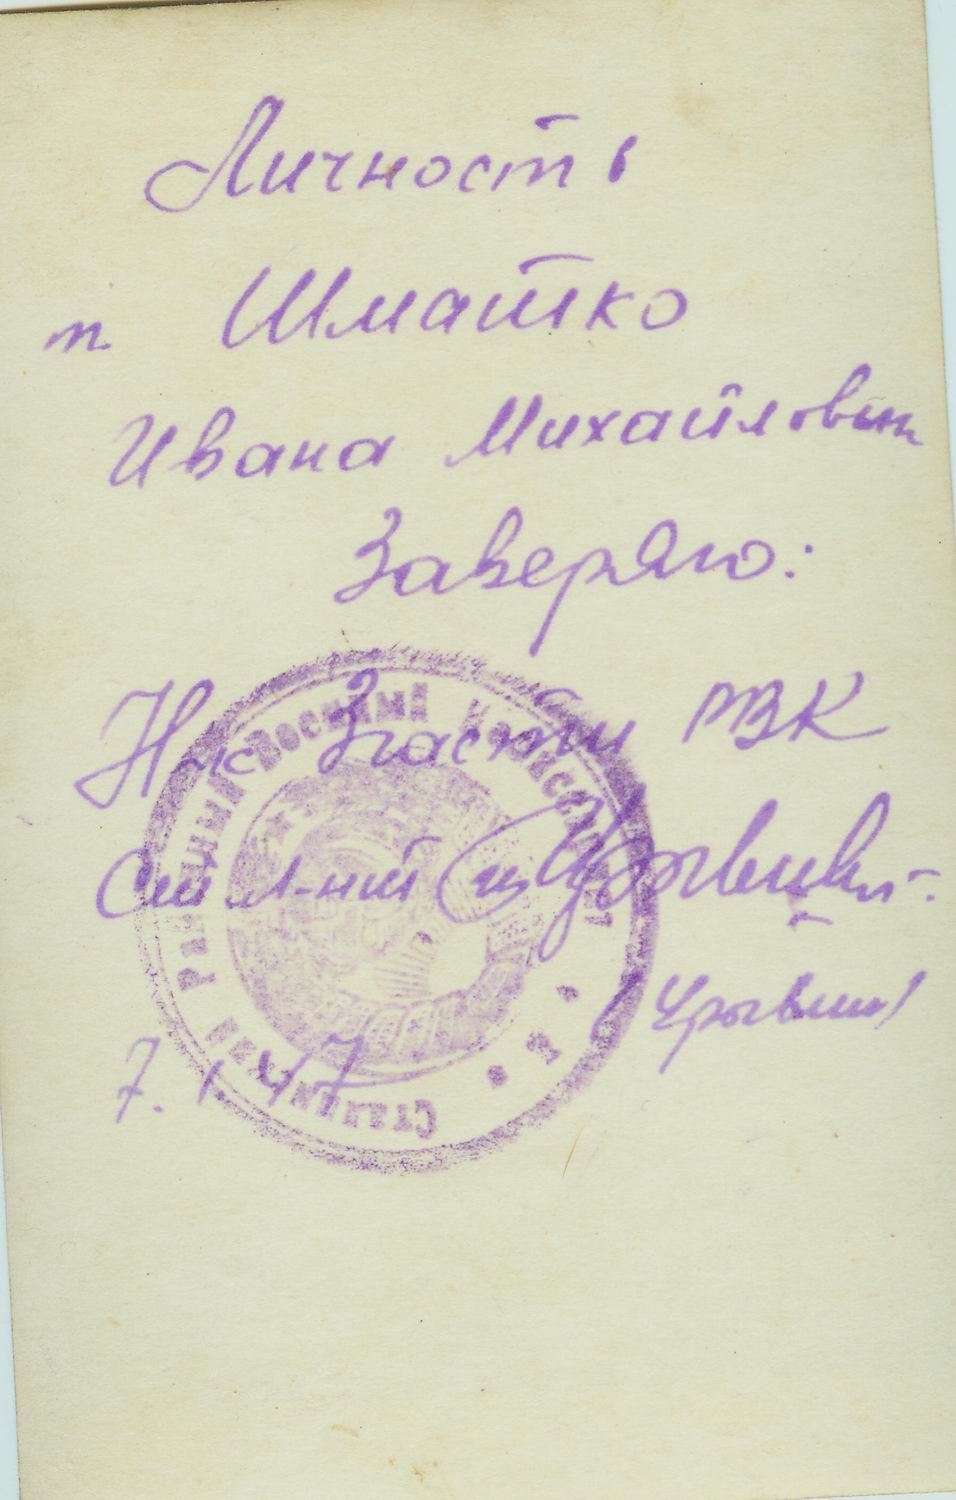 Личность
т. Шматко
Ивана Михайлович
Заверяю:
Нк 3 части РВК
Ст. л-нт
7.1.47
Сталинский Районный Военный Комиссариат